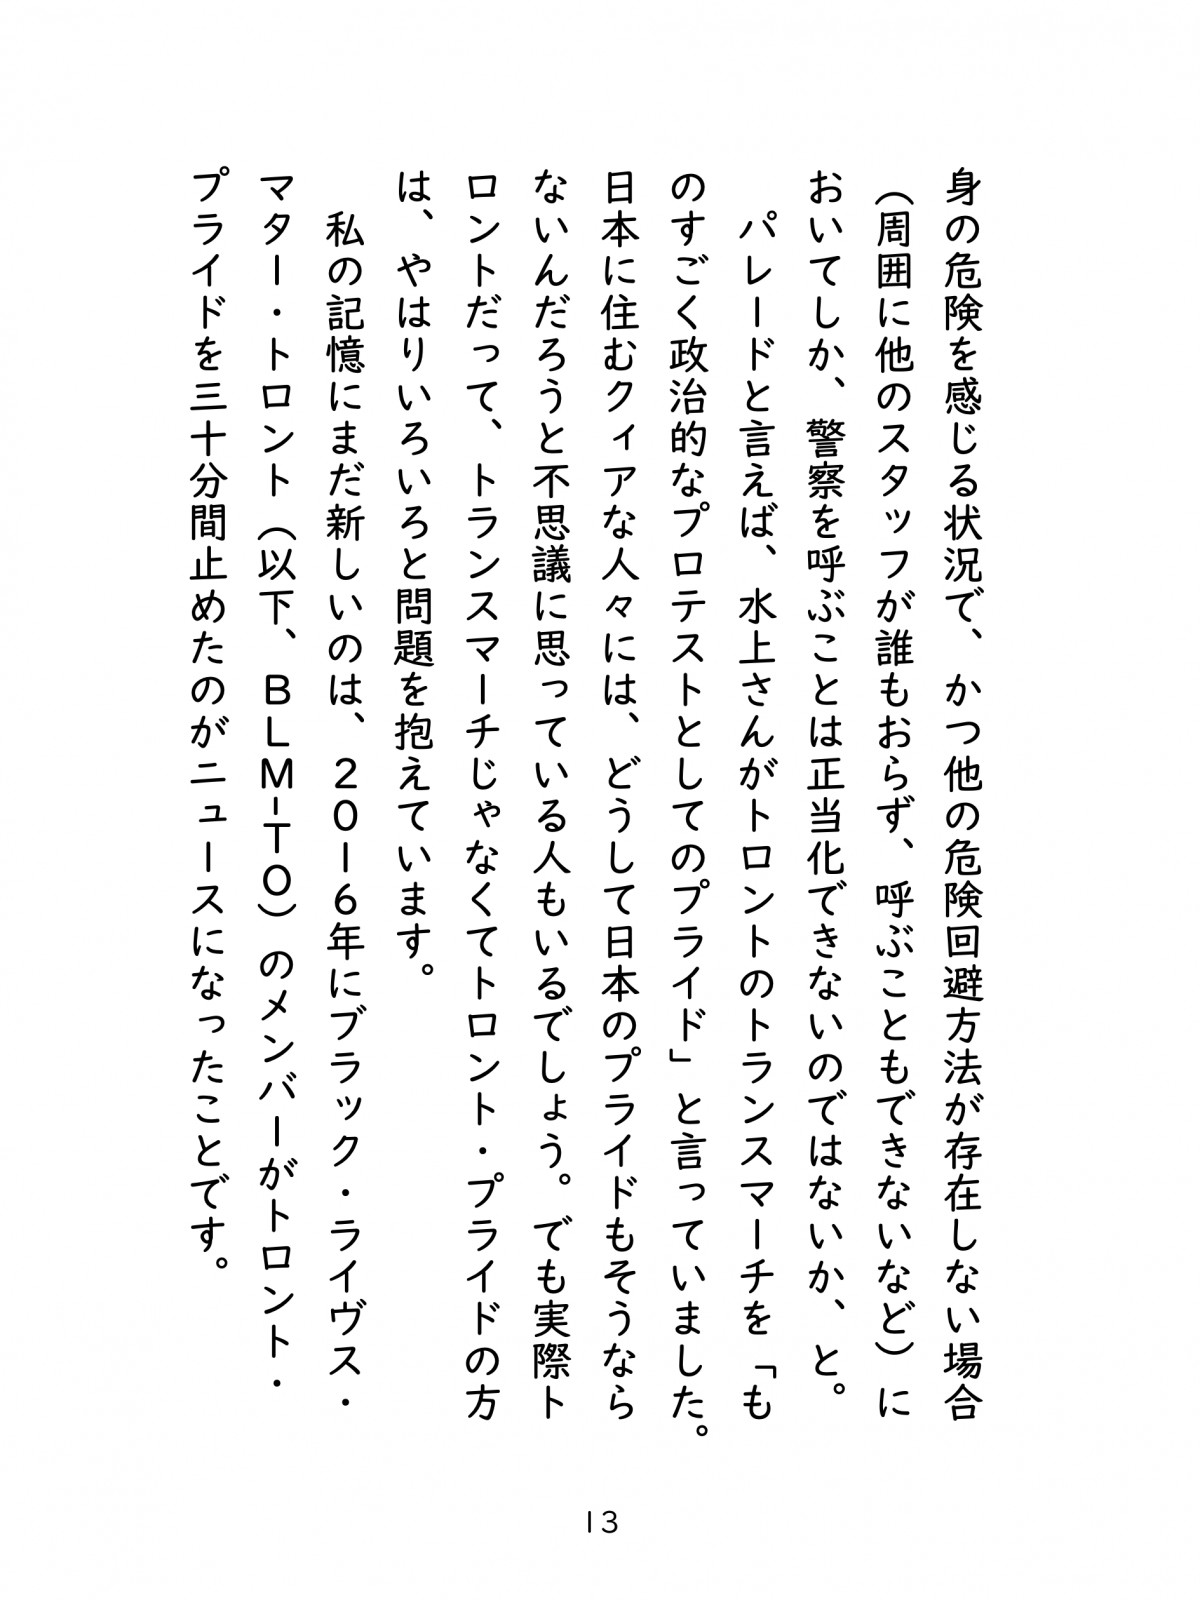 身の危険を感じる状況で、かつ他の危険回避方法が存在しない場合
（周囲に他のスタッフが誰もおらず、呼ぶこともできないなど）に
おいてしか、警察を呼ぶことは正当化できないのではないか、と。
　パレードと言えば、水上さんがトロントのトランスマーチを「も
のすごく政治的なプロテストとしてのプライド」と言っていました。
日本に住むクィアな人々には、どうして日本のプライドもそうなら
ないんだろうと不思議に思っている人もいるでしょう。でも実際ト
ロントだって、トランスマーチじゃなくてトロント・プライドの方
は、やはりいろいろと問題を抱えています。
　私の記憶にまだ新しいのは、２０１６年にブラック・ライヴス・
マター・トロント（以下、ＢＬＭ-ＴＯ）のメンバーがトロント・
プライドを三十分間止めたのがニュースになったことです。
13